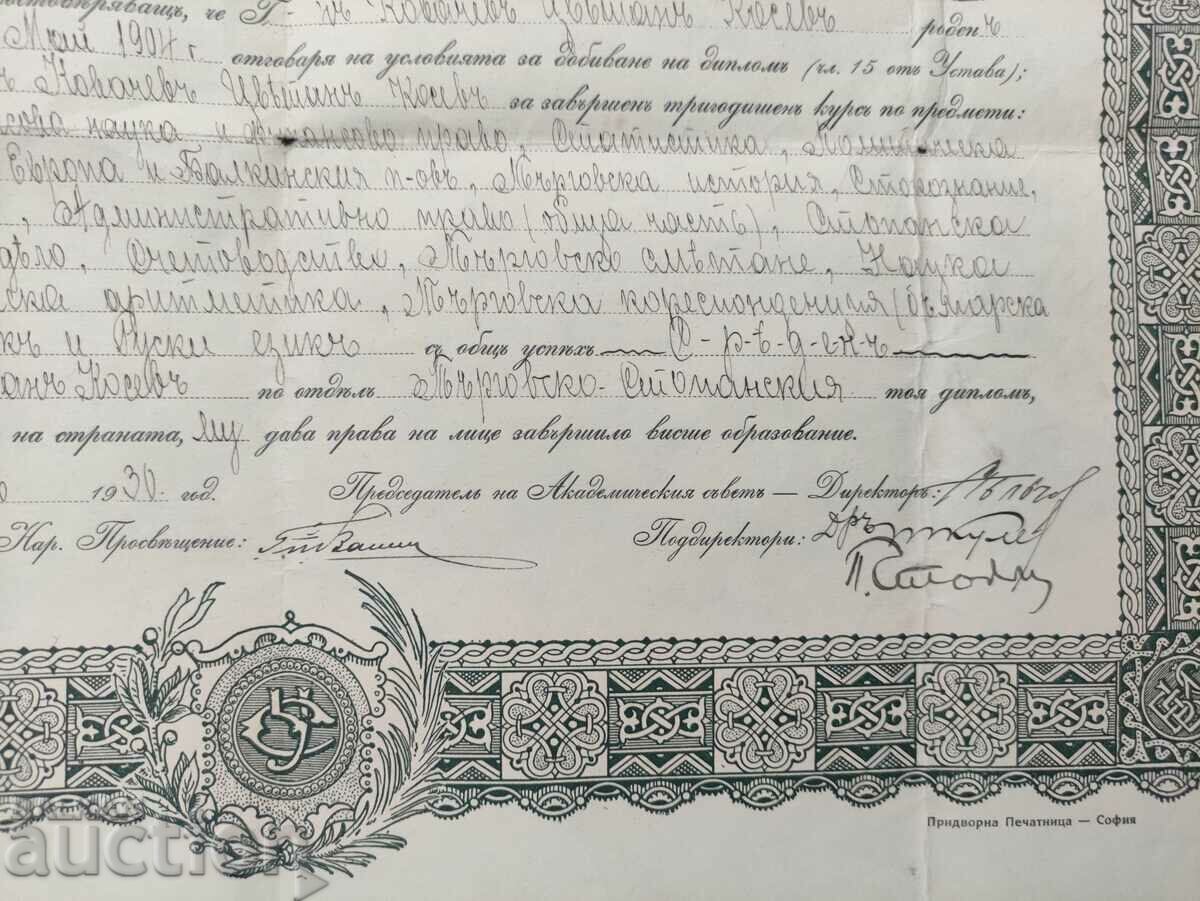 че Г-нъ Ковачевъ Цвѣтанъ Косевъ роденъ
Май 1904 г. отговаря на условията за добиване на дипломъ (чл. 15 отъ Устава);
Ковачевъ Цвѣтанъ Косевъ за завършенъ тригодишенъ курсъ по предмети:
наука и финансово право, Статистика, Политическа
Европа и Балкански п-овъ, Търговска история, Стокознание,
, Административно право (обща часть), Стопанска
дѣло, Счетоводство, Търговско смѣтане, Наука
ска аритметика, Търговска кореспонденция (българска
къ и Руски езикъ съ общъ успѣхъ С-р-ѣ-д-е-н-ъ
анъ Косевъ по отдѣлъ Търговско-Стопанския тоя дипломъ,
на страната, му дава права на лице завършило висше образование.
1930 год. Председатель на Академическия съветъ — Директоръ:
Нар. Просвѣщение: Поддиректори: Д-ръ
П. Стоян
Придворна Печатница — София
auction